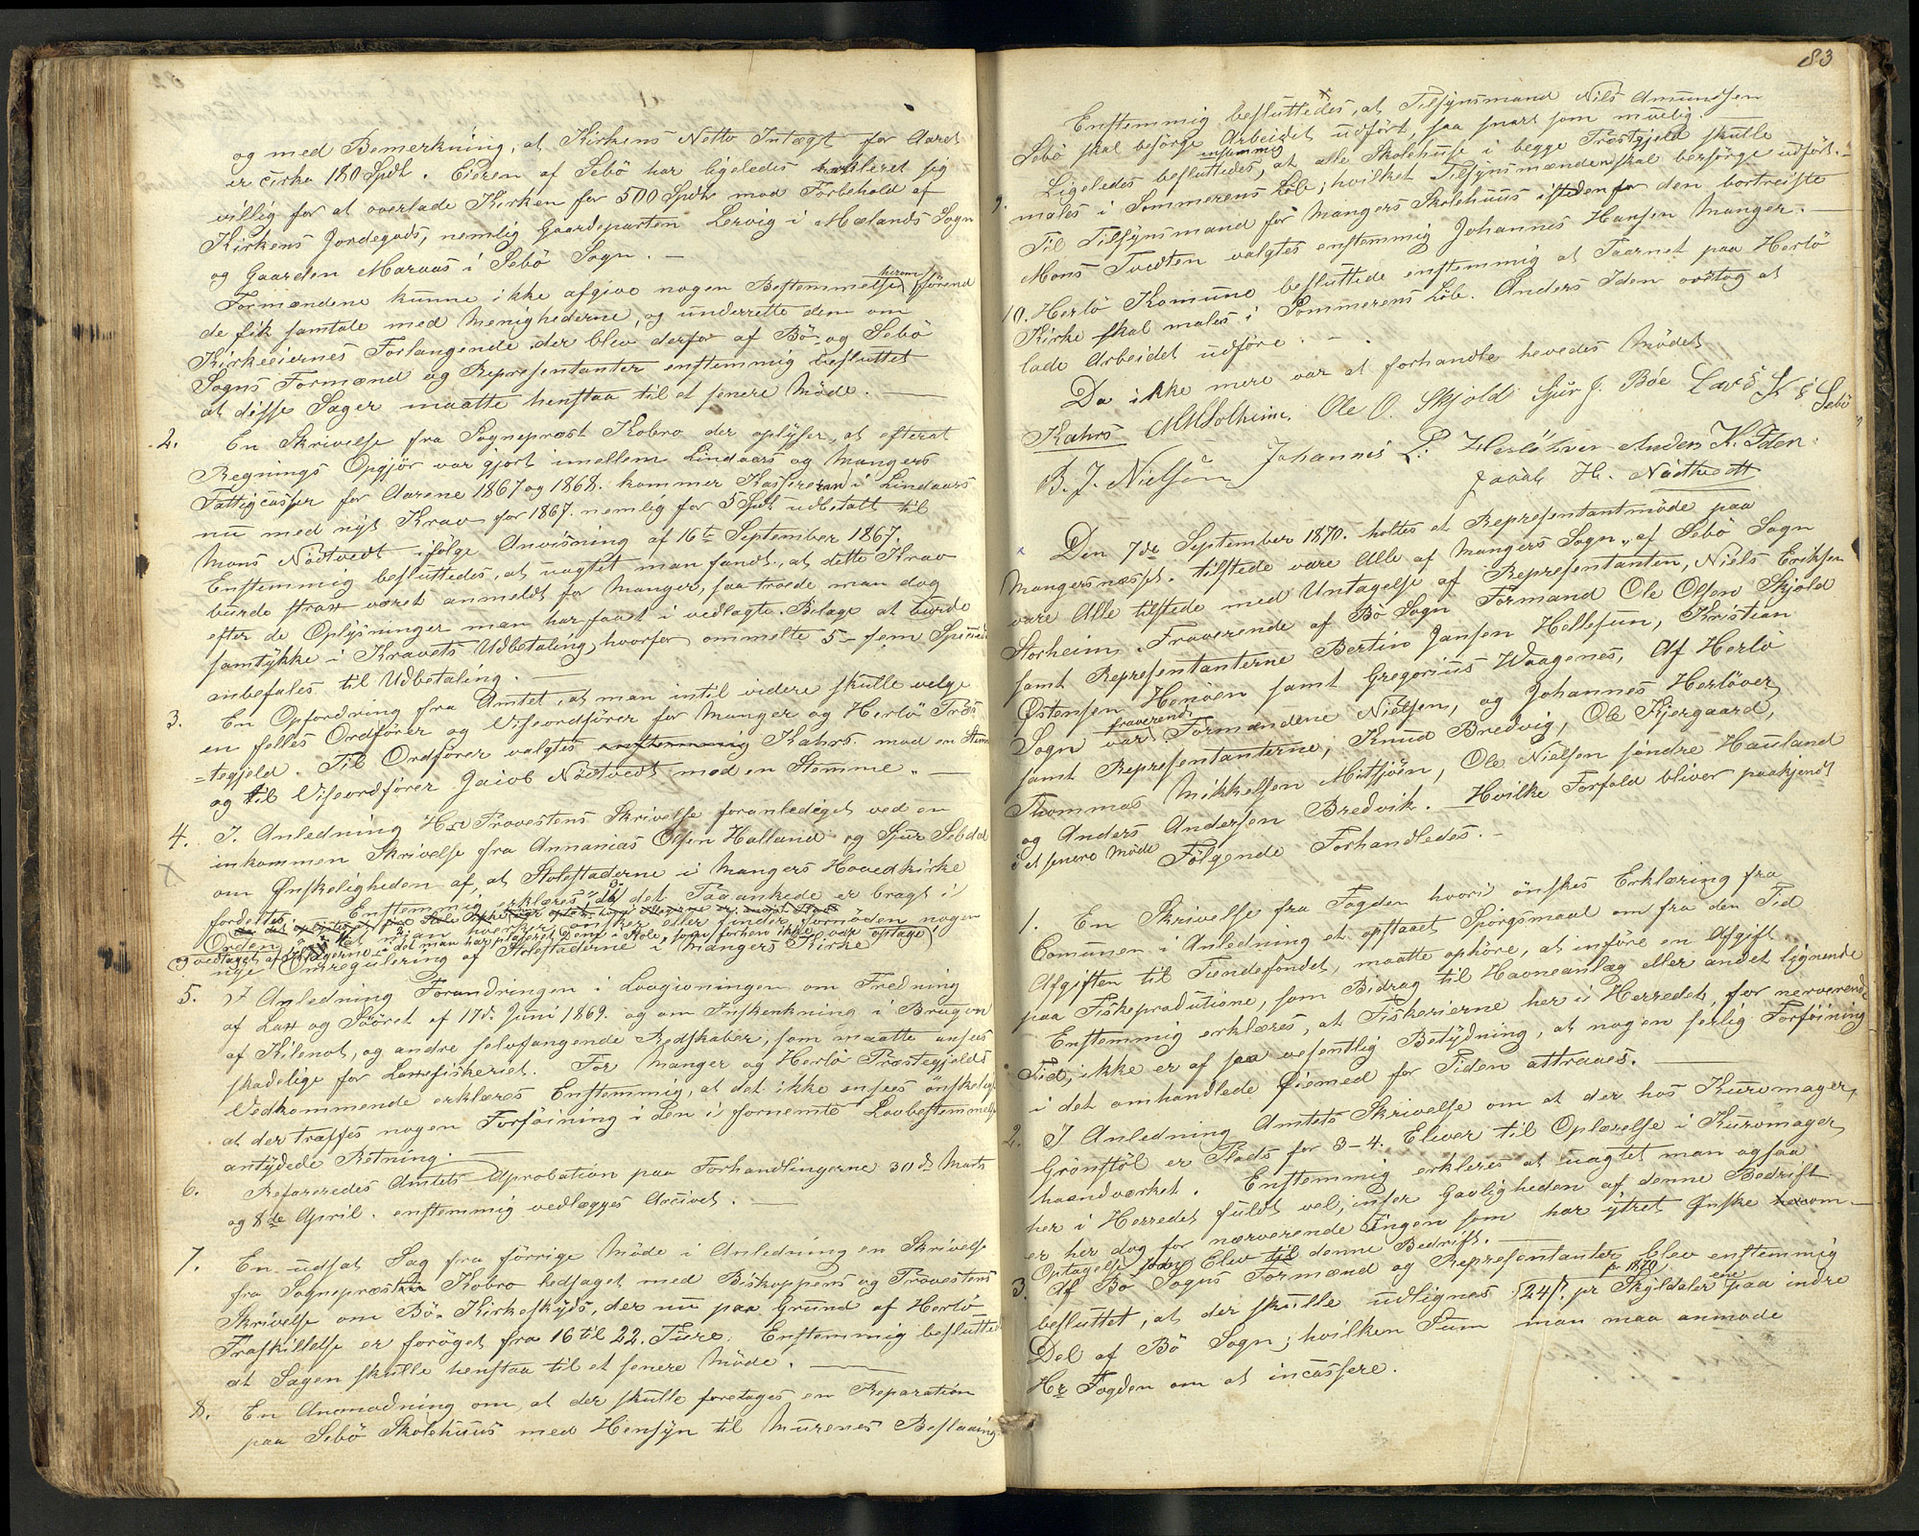 og med Bemerkning, at Kirkens Netto Intægt for Aaret
er cirka 180 Spdl. Eieren af Sebö har ligeledes erkleret sig
villig for at overlade Kirken for 500 Spdlr mod Forbehold af
Kirkens Jordegods, nemlig Gaardeparten Lervig i Mælands Sogn
og Gaarden Maraas i Sebö Sogn. —
Formændene kunne ikke afgive nogen Bestemmelse herom förend
de fik samtale med Menighederne, og underrette dem om
Kirkeeiernes Forlangende der blev derfor af Bö og Sebö
Sogns Formænd og Representanter enstemmig besluttet
at disse Sager maatte henstaa til et senere Möde. —
2. En Skrivelse fra Sognepræst Kobro der oplyser, at efterat
Regnings Opgjör var gjort imellem Lindaars og Mangers
Fattigcasser for Aarene 1867 og 1868. kommer Kassereren i Lindaars
nu med nyt Krav for 1867. nemlig for 5 Spdl udbetalt til
Mons Nödtvedt ifölge Anvisning af 16te September 1867.
Enstemmig besluttedes, at uagtet man fandt, at dette Krav
burde strax været anmeldt for Manger, saa troede man dog
efter de Oplysninger man har faaet i vedlagte Bilage at burde
samtykke i Kravets Udbetaling, hvorfor ommelte 5 – fem Specied
anbefales til Udbetaling. —
3. En Opfordring fra Amtet, at man intil videre skulle velge
en felles Ordförer og Viseordförer for Manger og Herlö Præs
=tegjeld. Til Ordförer valgtes enstemmig Kahrs mod en Stem
og til Viseordförer Jacob Nödtvedt mod en Stemme. —
4. I Anledning Hr Provestens Skrivelse foranlediget ved en
inkommen Skrivelse fra Annanias Olsen Halland og Sjur Sebdal
om Ønskeligheden af, at Stolestaderne i Mangers Hovedkirke
fordeltes. Enstemmig erklæres, da det Paaankede er bragt i
Orden, at man hverken önsker eller finder fornöden nogen
nye Omregulering af Stolestaderne i Mangers Kirke
5. I Anledning Forandringen i Lovgivningen om Fredning
af Lax og Sööret af 17d. Juni 1869. og om Inskrenkning i Brugen
af Kilenot, og andre selvfangende Redskaber, som maatte ansees
skadelige for Laxefiskeriet. For Manger og Herlö Præstegjelds
Vedkommende erklæres Enstemmig, at det ikke ansees önskeligt
at der træffes nogen Forföining i den i fornemte Lovbestemmelse
antydede Retning. —
6. Refereredes Amtets Aprobation paa Forhandlingerne 30 d. Marts
og 8de April. enstemmig vedlægges Arcivet. —
7. En udsat Sag fra förrige Möde i Anledning en Skrivelse
fra Sognepræsten Kobro ledsaget med Biskoppens og Provestens
Skrivelse om Bö Kirkeskyds, der nu paa Grund af Herlö
Fraskillelse er foröget fra 16 til 22. Ture. Enstemmig beslutted
at Sagen skulle henstaa til et senere Möde. —
8. En Anmodning om, at der skulle foretages en Reparation
paa Sebö Skolehuus med Hensyn til Murenes Beslaaing
83
Enstemmig besluttedes, at Tilsynsmand Nils Amundsen
Sebö skal besörge Arbeidet udfört, saa snart som muelig.
9. Ligeledes besluttedes enstemmig, at alle Skolehuse i begge Præstgjeld skulle
males i Sommerens Löb; hvilket Tilsynsmændene skal bersörge udfört. —
Til Tilsynsmand for Mangers Skolehuus istedenfor den bortreiste
Mons Tvedten valgtes enstemmig Johannes Hansen Manger. —
10. Herlö Komune besluttede enstemmig at Taarnet paa Herlö
Kirke skal males i Sommerens Löb. Anders Iden overtog at
lade Arbeidet udföre. —
Da ikke mere var at forhandle hevedes Mödet
Kahrs Ole O. Skjold Sjur J. Böe Lars
B. J. Nielsen Johannes L. Herlöhver Anders K. Iden
Jacob H. Nödtvedt
Den 7de September 1870. holtes et Representantmöde paa
Mangersnæsset. tilstede vare Alle af Mangers Sogn, af Sebö Sogn
vare Alle tilstede med Untagelse af Representanten, Niels Eriksen
Storheim. Fraverende af Bö Sogn Formand Ole Olsen Skjold
samt Representanterne Bertin Jansen Hellesun, Kristian
Østensen Henöen samt Gregorius Waagenes, Af Herlö
Sogn var fraverend Formændene Nielsen, og Johannes Herlöver,
samt Representanterne, Knud Bredvig, Ole Kjergaard,
Thommas Mikkelsen Mitsjöen, Ole Nielsen söndre Hauland
og Anders Andersen Bredvik. Hvilke Forfald bliver paakjendt
i et senere Möde Fölgende Forhandledes. —
1. En Skrivelse fra Fogden hvori önskes Erklæring fra
Comunen i Anledning et opstaaet Spörgsmaal om fra den Tid
Afgiften til Tiendefondet, maatte ophöre, at införe en Afgift
paa Fiskeprodutione, som Bidrag til Havneanlæg eller andet lignende
Enstemmig erklæres, at Fiskerierne her i Herredet, for nerverende
Tid, ikke er af saa vesentlig Betydning, at nogen serlig Forföining
i det omhandlede Øiemed for Tiden attraaes. —
2. I Anledning Amtets Skrivelse om at der hos Kurvmager,
Grönstöl er Plads for 3–4. Elever til Oplærelse i Kurvmager
haandværket. Enstemmig erkleres at uagtet man ogsaa
her i Herredet fuldt vel, inser Gavligheden af denne Bedrift
er her dog for nærverende Ingen som har ytret Ønske om
Optagelse som Elev til denne Bedrift. —
3. Af Bö Sogns Formænd og Representanter blev enstemmig
besluttet, at der skulle udlignes for 1870 24 /. pr Skyldaler paa indre
Del af Bö Sogn; hvilken Sum man maa anmode
Hr Fogden om at incassere.